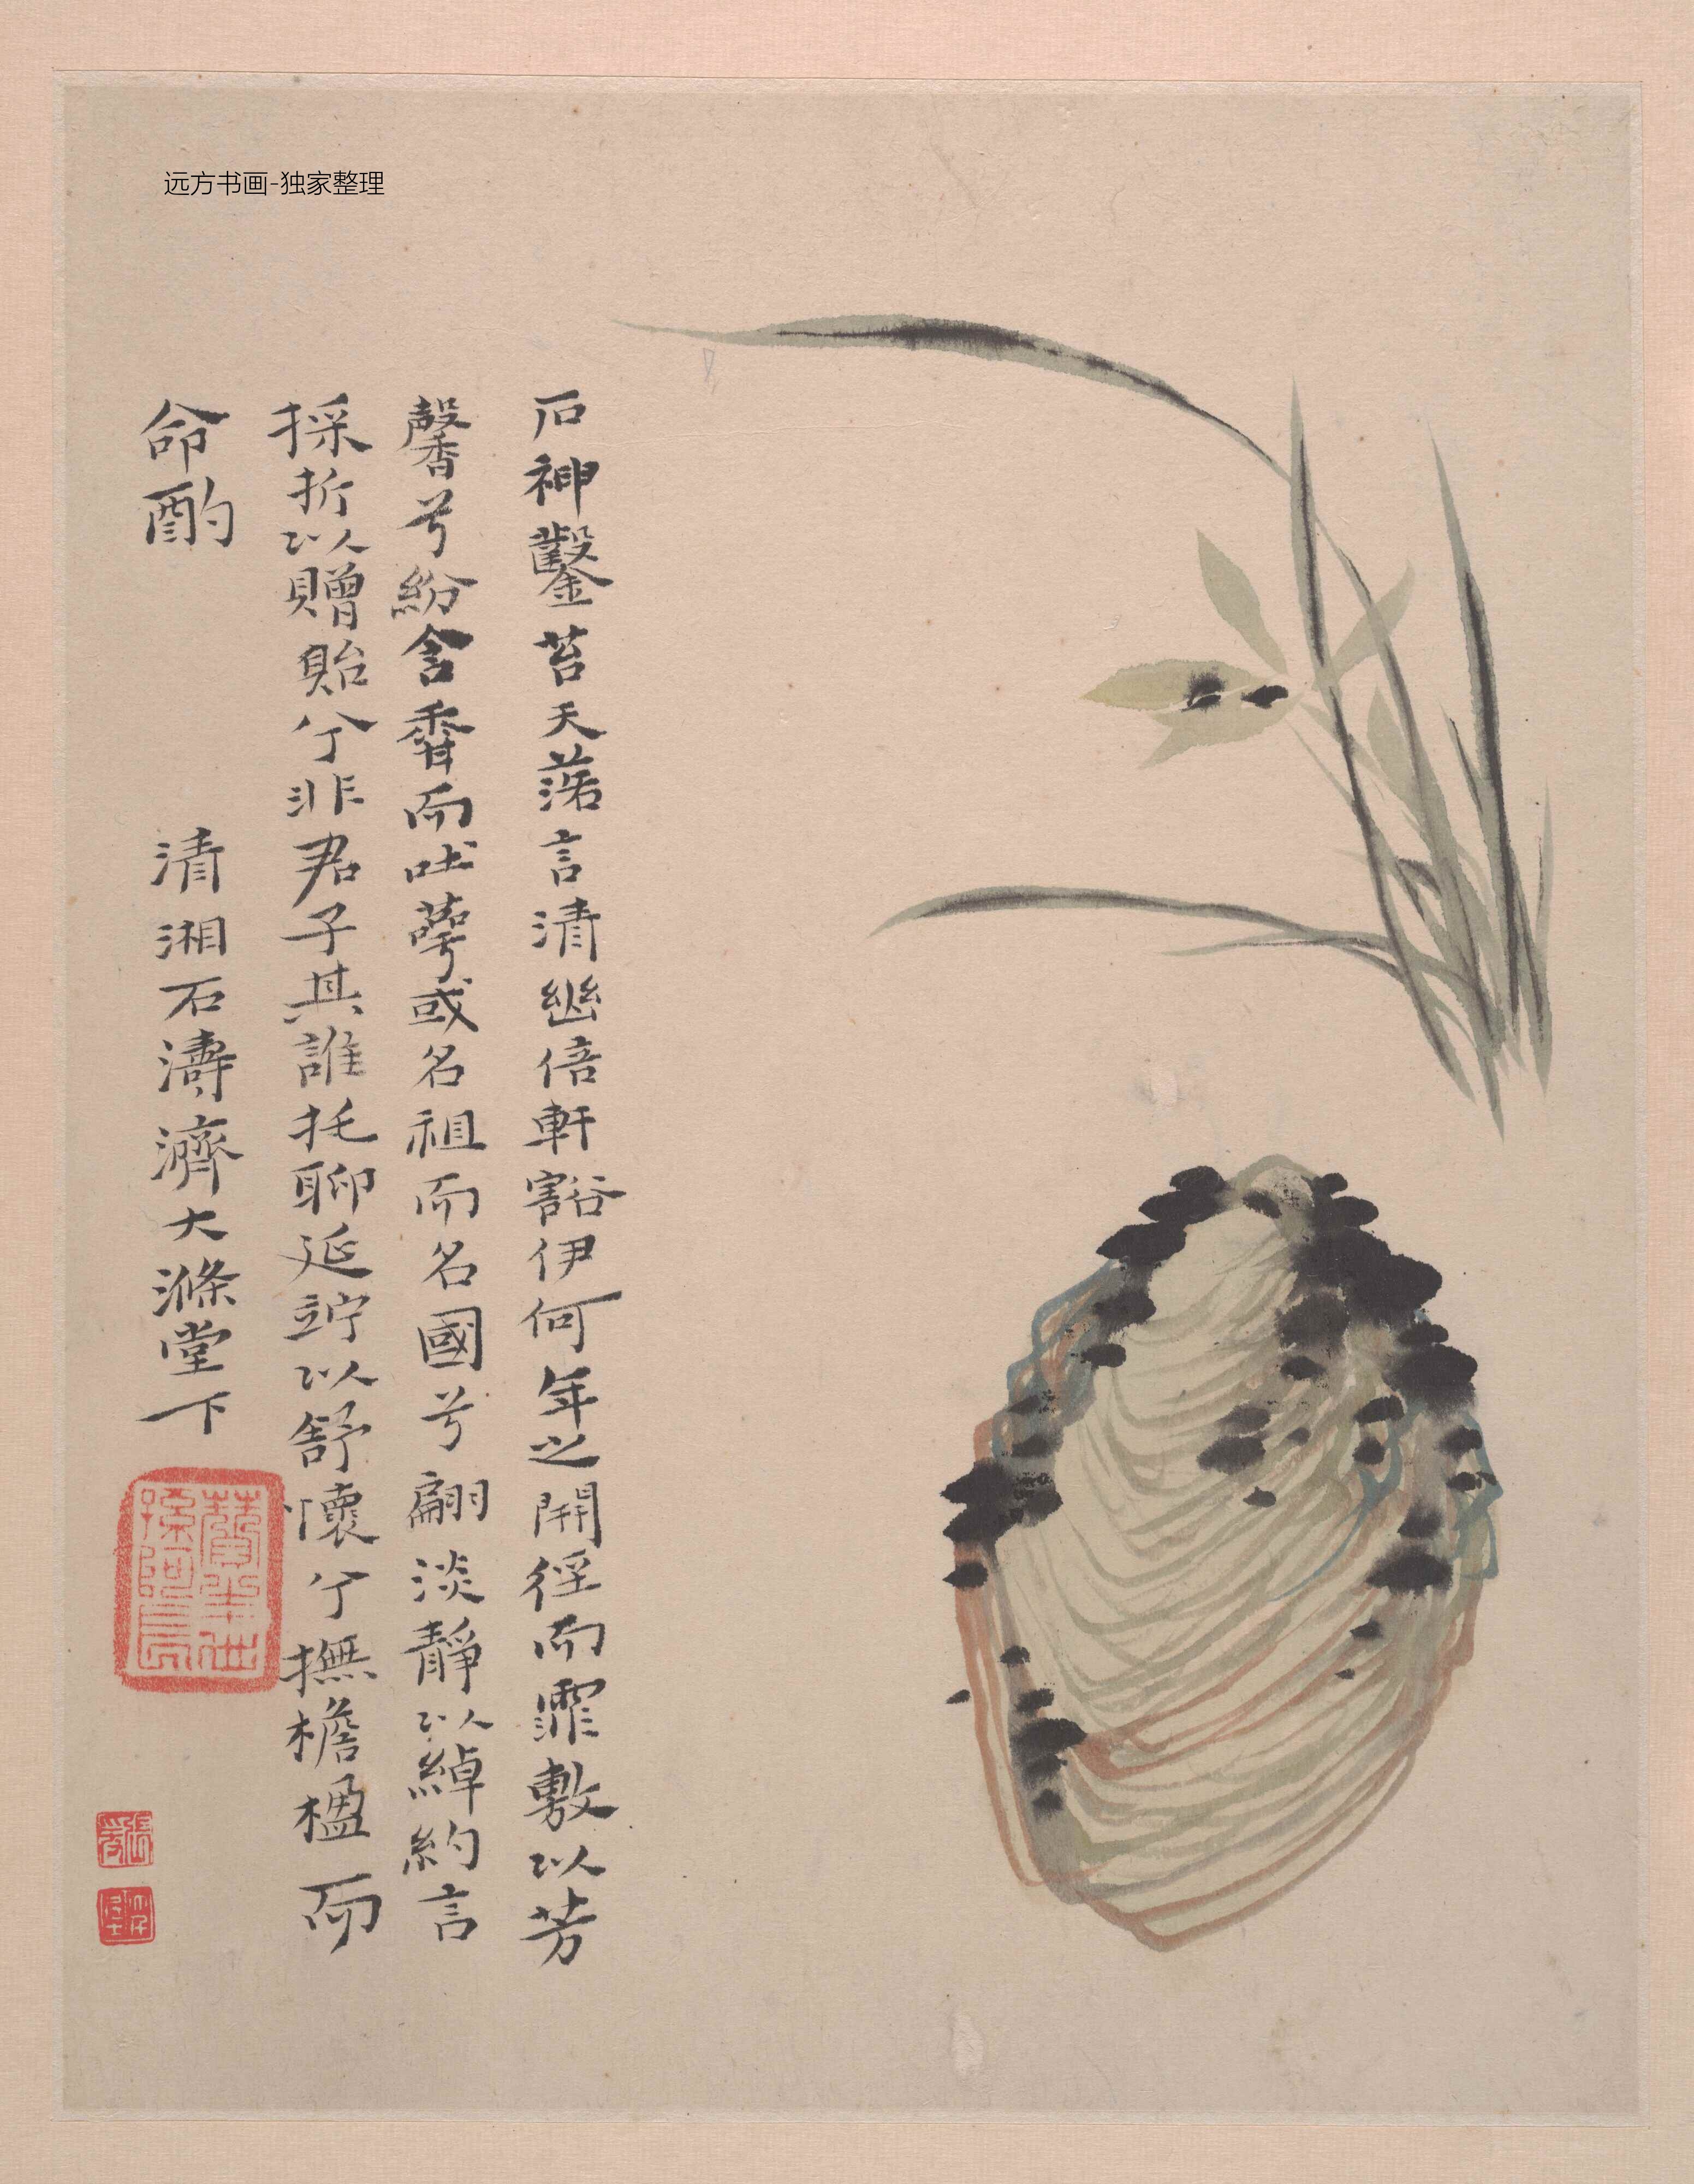 远方书画-独家整理
石神鑿苔天蕩言清幽倍軒豁伊何年之開徑而霏敷以芳
馨兮紛含香而吐萼或名祖而名國兮翩淡靜以綽約言
採折以贈貽兮非君子其誰托聊延竚以舒懷兮撫檐楹而
命酌
清湘石濤濟大滌堂下
贊之十世孫阿長